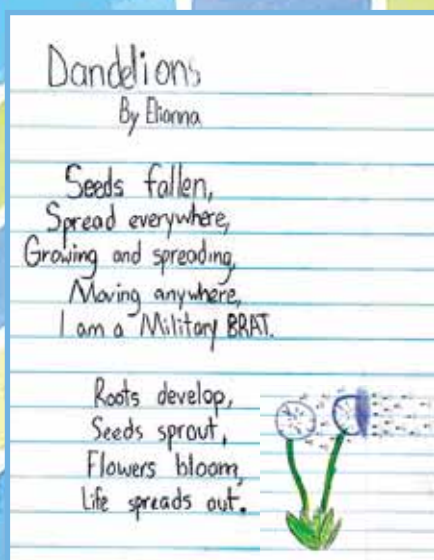 Dandelions
By Elianna
Seeds fallen,
Spread everywhere,
Growing and spreading,
Moving anywhere,
I am a Military BRAT.
Roots develop,
Seeds sprout,
Flowers bloom,
Life spreads out.